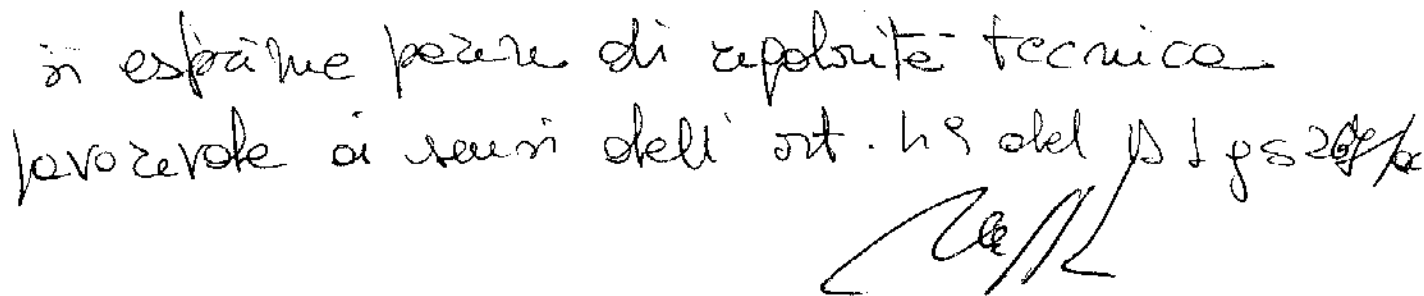 si esprime parere di regolarità tecnica
favorevole ai sensi dell'art. 49 del D Lgs 267/00